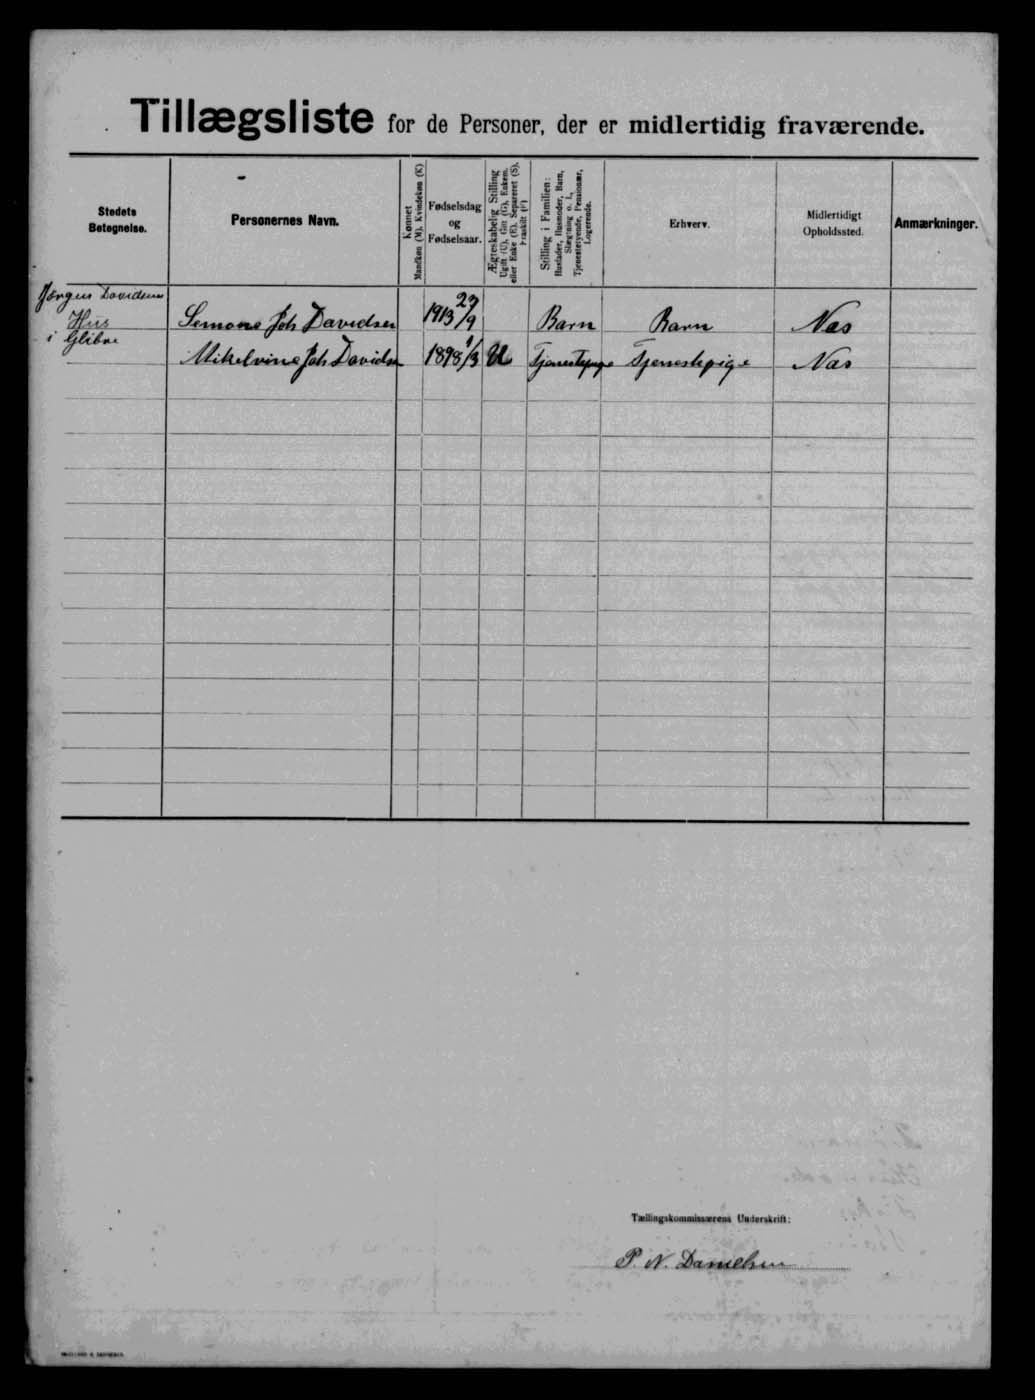 Tillægsliste for de Personer, der er midlertidig fraværende.
Stedets Betegnelse.
Personernes Navn.
Kønnet Mandkøn (M). Kvindekøn (K)
Fødselsdag og Fødselsaar.
Ægteskabelig Stilling Ugift (U), Gift (G), Enkem. eller Enke (E), Separeret (S), Fraskilt (F)
Stilling i Familien: Husfader, Husmoder, Barn, Slægtning o. l., Tjenestetyende, Pensionær, Logerende.
Erhverv.
Midlertidigt Opholdssted.
Anmærkninger.
Jørgen Davidsens
Hus
i Glibre
Semona Joh Davidsen 1913 29/9 Barn Barn Næs
Mikelvine Joh Davidsen 1898 1/3 U Tjenestepige Tjenestepige Næs
Tællingskommissærens Underskrift:
P. N. Danielsen